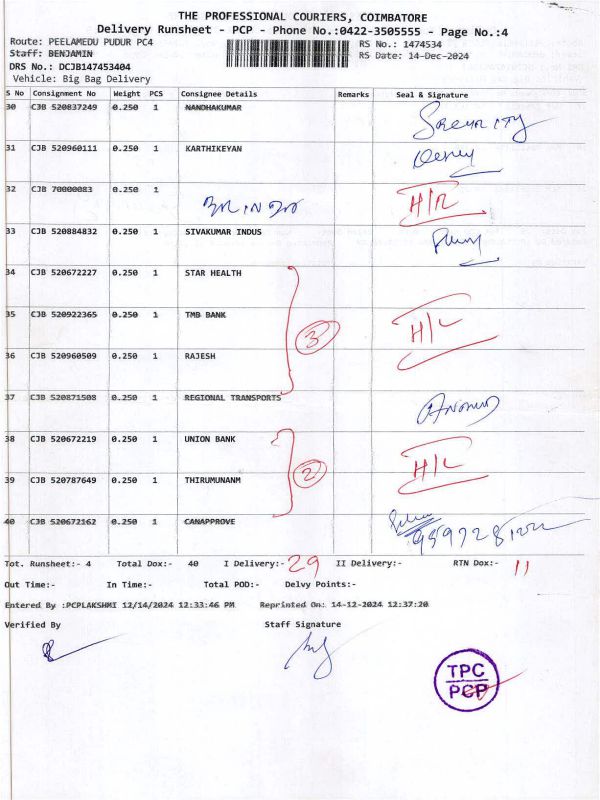 THE PROFESSIONAL COURIERS, COIMBATORE
Delivery Runsheet - PCP - Phone No.:0422-3505555 - Page No.:4
Route: PEELAMEDU PUDUR PC4
RS No.: 1474534
Staff: BENJAMIN
RS Date: 14-Dec-2024
DRS No.: DCJB147453404
Vehicle: Big Bag Delivery
S No Consignment No Weight PCS Consignee Details Remarks Seal & Signature
30 CJB 520837249 0.250 1 NANDHAKUMAR
31 CJB 520960111 0.250 1 KARTHIKEYAN
32 CJB 70000083 0.250 1 H/R
33 CJB 520884832 0.250 1 SIVAKUMAR INDUS
34 CJB 520672227 0.250 1 STAR HEALTH
35 CJB 520922365 0.250 1 TMB BANK 3 H/L
36 CJB 520960509 0.250 1 RAJESH
37 CJB 520871508 0.250 1 REGIONAL TRANSPORTS
38 CJB 520672219 0.250 1 UNION BANK H/L
39 CJB 520787649 0.250 1 THIRUMUNANM 2
40 CJB 520672162 0.250 1 CANAPPROVE
Tot. Runsheet:- 4 Total Dox:- 40 I Delivery:- 29 II Delivery:- RTN Dox:- 11
Out Time:- In Time:- Total POD:- Delvy Points:-
Entered By :PCPLAKSHMI 12/14/2024 12:33:46 PM Reprinted On: 14-12-2024 12:37:20
Verified By Staff Signature
TPC
PCP